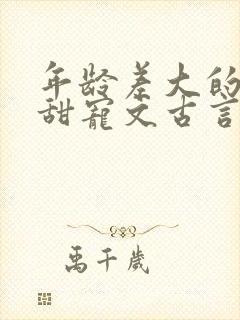 年龄差大的
甜宠文古言
禹千歲